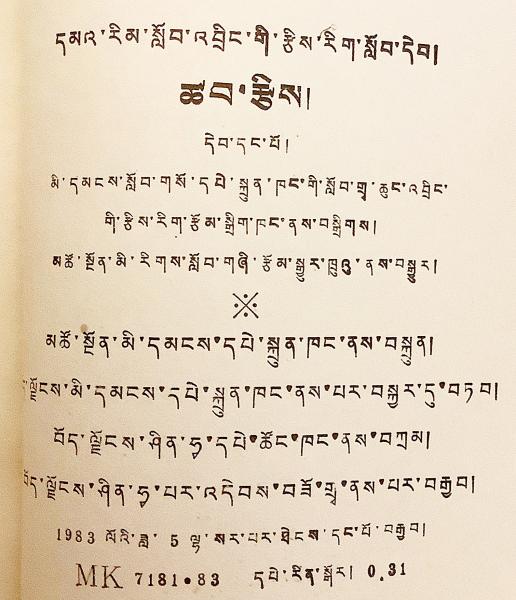 དམའ་རིམ་སློབ་འབྲིང་གི་རྩིས་རིག་སློབ་དེབ།
ཚབ་རྩིས།
དེབ་དང་པོ།
མི་དམངས་སློབ་གསོ་དཔེ་སྐྲུན་ཁང་གི་སློབ་གྲྭ་ཆུང་འབྲིང་
གི་རྩིས་རིག་རྩོམ་སྒྲིག་ཁང་ནས་བསྒྲིགས།
མཚོ་སྔོན་མི་རིགས་སློབ་གཞི་རྩོམ་སྒྱུར་ཁུའུ་ནས་བསྒྱུར།
※
མཚོ་སྔོན་མི་དམངས་དཔེ་སྐྲུན་ཁང་ནས་བསྐྲུན།
ལྗོངས་མི་དམངས་དཔེ་སྐྲུན་ཁང་ནས་པར་བསྐྱར་དུ་བཏབ།
བོད་ལྗོངས་ཤིན་ཧྭ་དཔེ་ཚོང་ཁང་ནས་བཀྲམ།
བོད་ལྗོངས་ཤིན་ཧྭ་པར་འདེབས་བཟོ་གྲྭ་ནས་པར་བརྒྱབ།
1983 ལོའི་ཟླ་ 5 ལྟ་སར་པར་ཐེངས་དང་པོ་བརྒྱབ།
MK 7181•83 དཔེ་རིན་སྒོར། 0.31